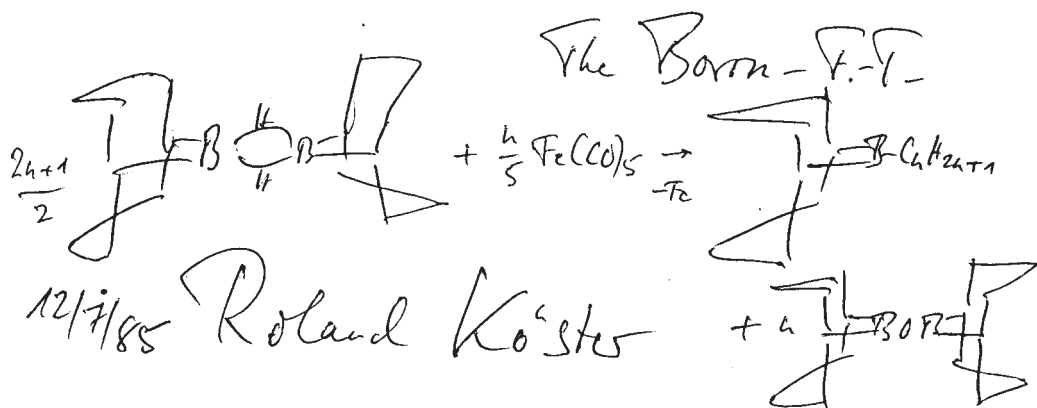 The Boron-F.-T-
2n+1/2 B H H B + n/5 Fe(CO)5 → -Fe B-CnH2n+1
12/7/85 Roland Köster + n BOB